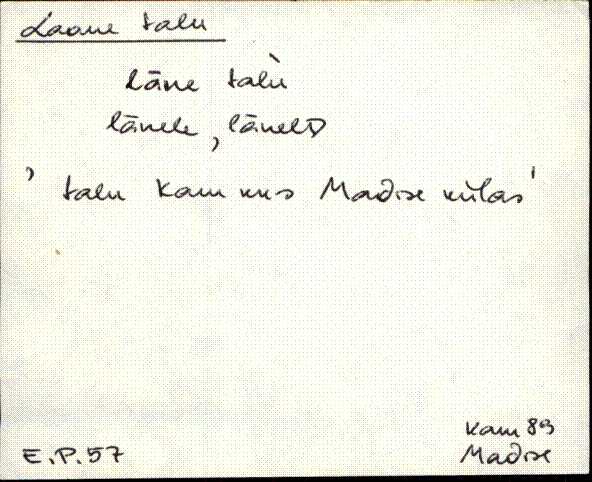 Laane talu
lāne talù
lānele, lānelD
' talu Kam khs Madise külas '
Kam 89
E.P.57 Madise